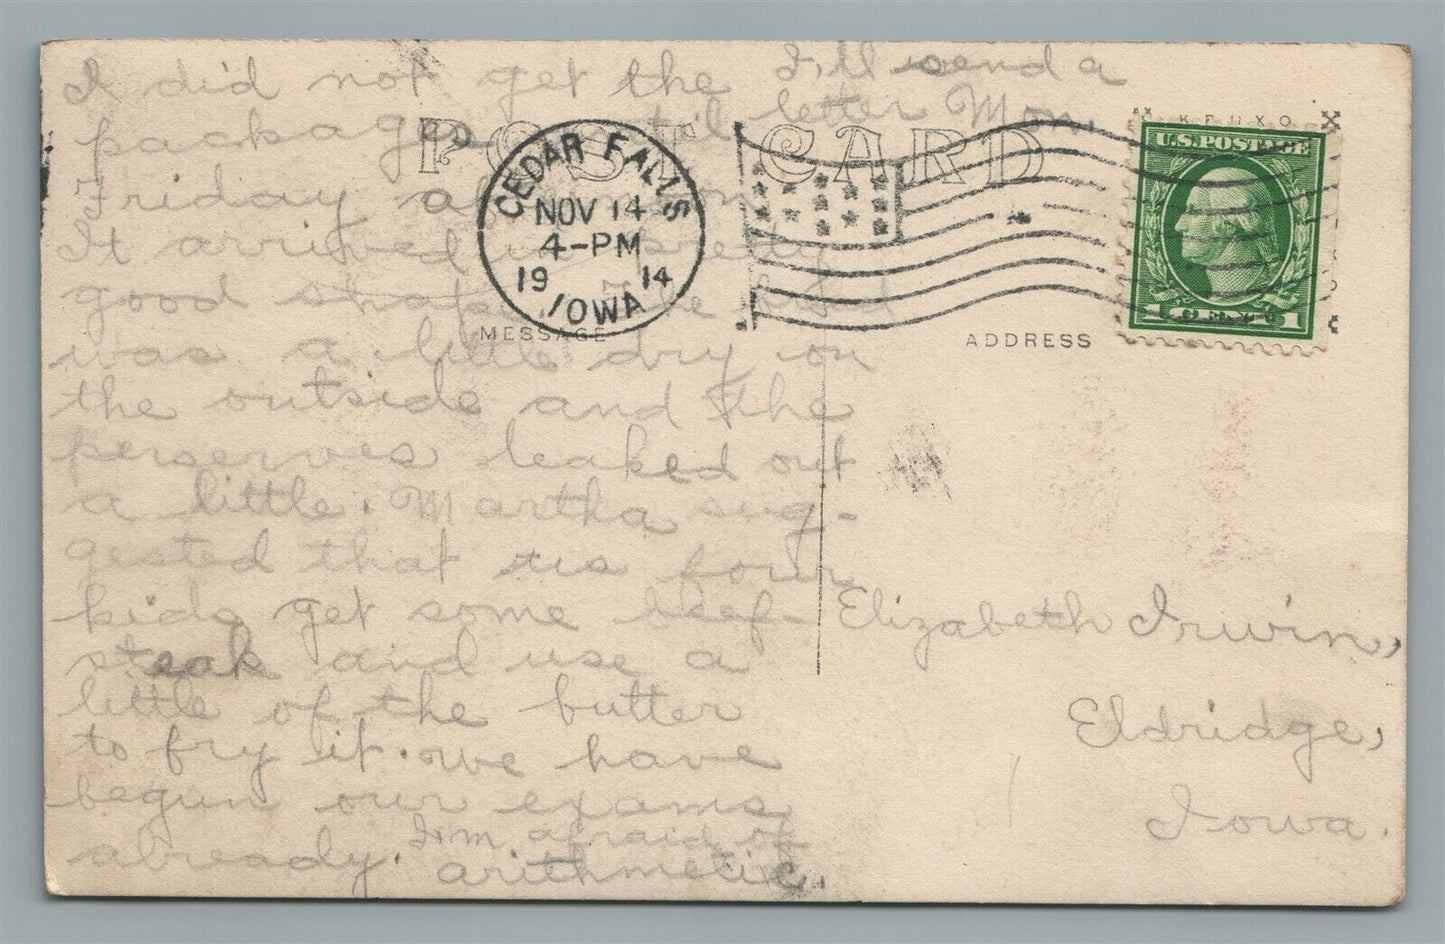 I did not get the
package until
Friday afternoon
It arrived in pretty
good shape. The bread
was a little dry on
the outside and the
perserves leaked out
a little. Martha sug-
gested that us four
kids get some beef-
steak and use a
little of the butter
to fry it. We have
begun our exams
already. I'm afraid of
arithmetic.
I'll send a
letter Mon.
POST CARD
CEDAR FALLS
NOV 14
4-PM
1914
IOWA
MESSAGE
ADDRESS
U.S. POSTAGE
1 CENT 1
Elizabeth Irwin,
Eldridge,
Iowa.